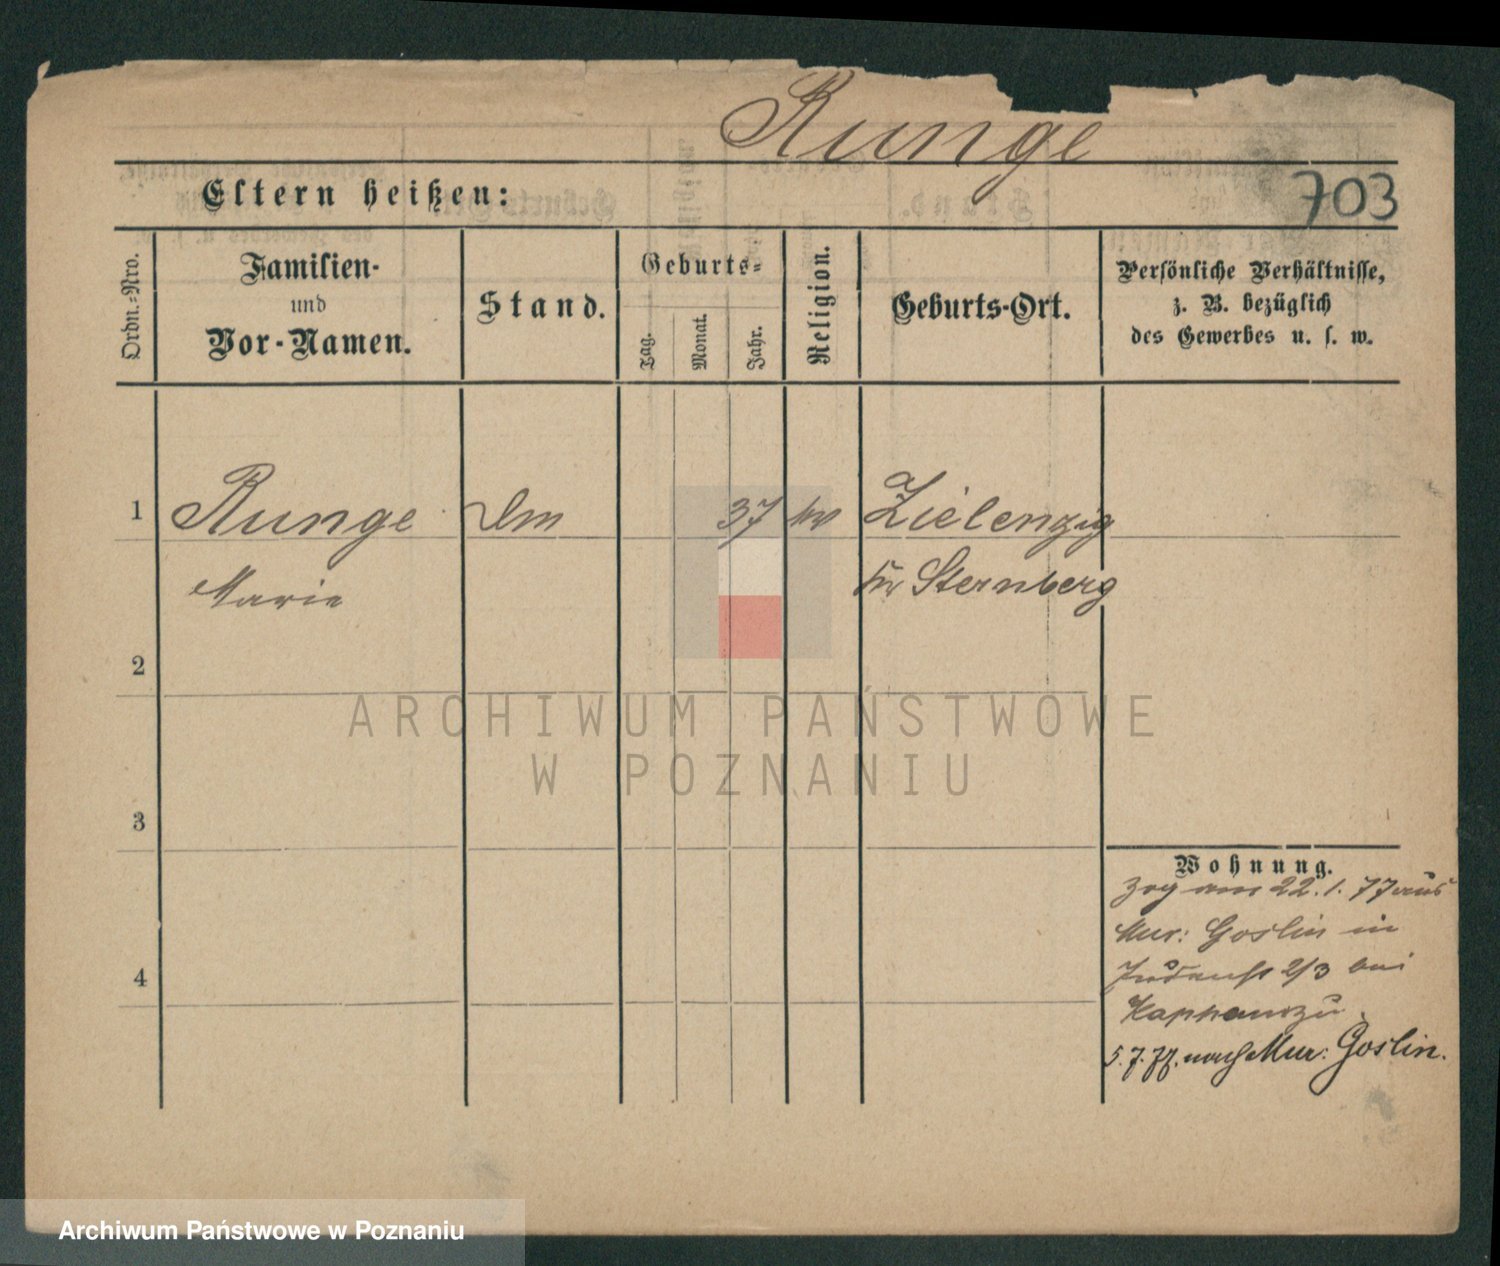 Runge
Eltern heißen:
703
Ordn.-Nro.
Familien-
und
Vor-Namen.
Stand.
Geburts-
Tag.
Monat.
Jahr.
Religion.
Geburts-Ort.
Persönliche Verhältnisse,
z. B. bezüglich
des Gewerbes u. s. w.
1 Runge 37 Zielenzig
Marie Kr Sternberg
2
3
4
Wohnung.
Zog am 22.1.77 aus
Mur: Goslin in
2/3 bei
5.7.77. nach Mur: Goslin.
ARCHIWUM PAŃSTWOWE
W POZNANIU
Archiwum Państwowe w Poznaniu